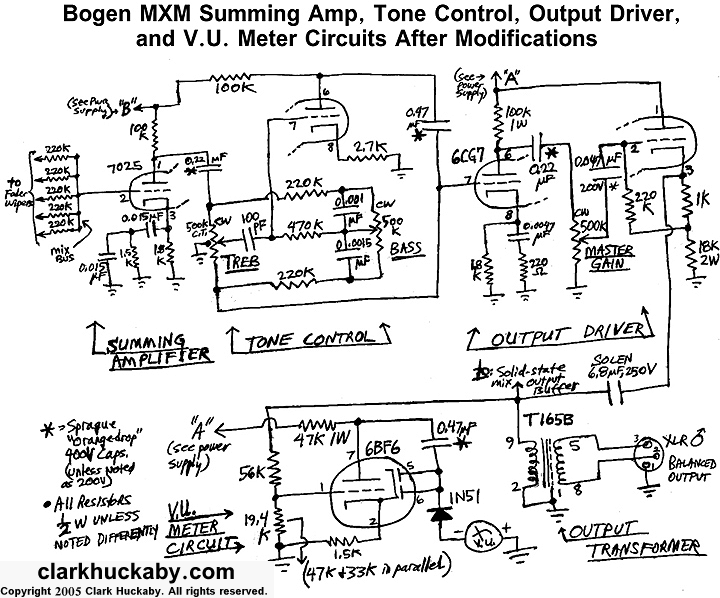 Bogen MXM Summing Amp, Tone Control, Output Driver,
and V.U. Meter Circuits After Modifications
(see Pwr
Supply) → "B"
100K
6
7
8
2.7K
0.47
μF
*
(see →
power
Supply)
"A"
100K
1W
100
K
7025
1
2
3
0.22
*
μF
to
Fader
wipers
220K
220K
220K
220K
220K
mix
BUS
0.015μF
0.015
μF
1.5
K
1.8
K
220K
470K
220K
500K
C.T.
CW
100
PF
TREB
0.001
μF
0.0015
μF
CW
500
K
BASS
6CG7
6
7
8
0.22
μF
*
0.0047
μF
1.8
K
220
Ω
0.047
μF
200V
*
CW
500K
MASTER
GAIN
1
2
3
220
K
1K
18K
2W
SUMMING
AMPLIFIER
TONE CONTROL
OUTPUT DRIVER
to: Solid-state
mix output
Buffer
SOLEN
6.8μF, 250V
* = Sprague
"Orangedrop"
400V Caps.
(unless noted
as 200V)
• All Resistors
1/2 W UNLESS
NOTED DIFFERENTLY
"A"
(see power
supply)
47K 1W
56K
19.4
K
6BF6
7
1
2
5
6
0.47μF
*
1N51
1.5K
(47K+33K in parallel)
V.U.
METER
CIRCUIT
−
V.U.
+
T165B
9
2
5
1
8
3
2
1
XLR ♂
BALANCED
OUTPUT
OUTPUT
TRANSFORMER
clarkhuckaby.com
Copyright 2005 Clark Huckaby. All rights reserved.